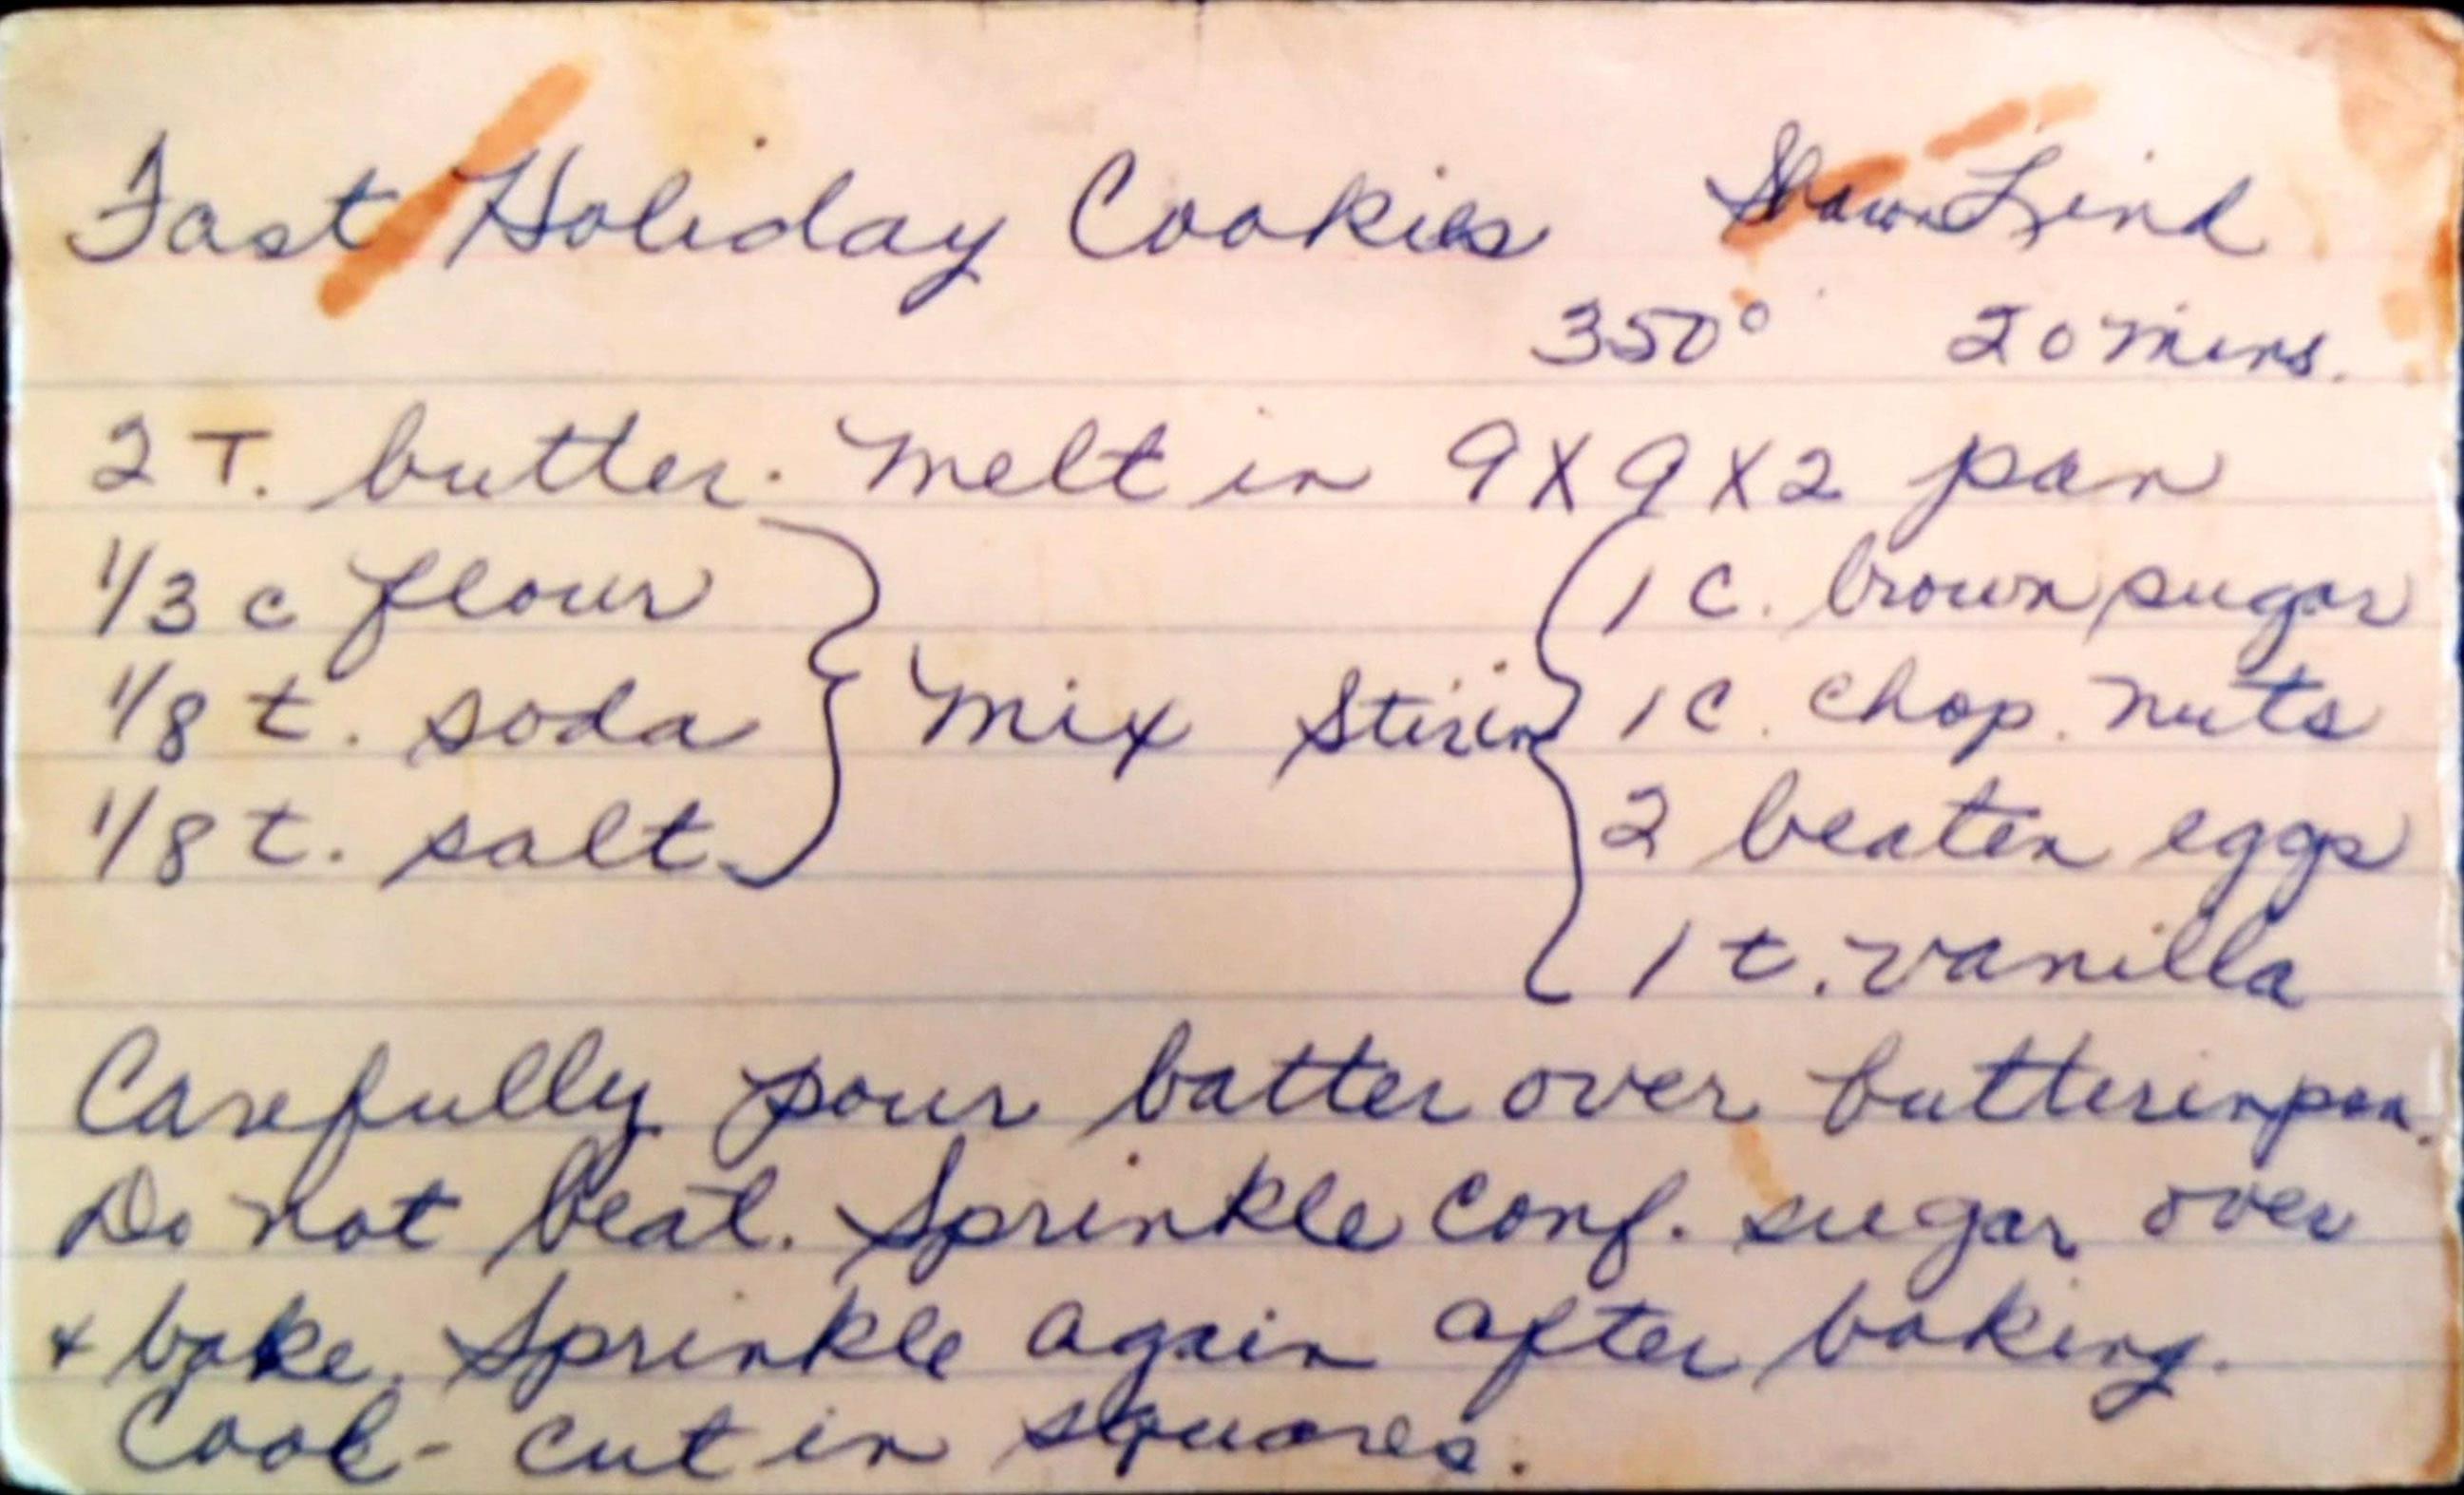 Fast Holiday Cookies Shawn Lind
350° 20 mins.
2 T. butter. Melt in 9X9X2 pan
1/3 c flour 1 c. brown sugar
1/8 t. soda Mix Stir in 1 c. chop. nuts
1/8 t. salt 2 beaten eggs
1 t. vanilla
Carefully pour batter over butter in pan.
Do not beat. Sprinkle conf. sugar over
+ bake. Sprinkle again after baking.
Cool - cut in squares.